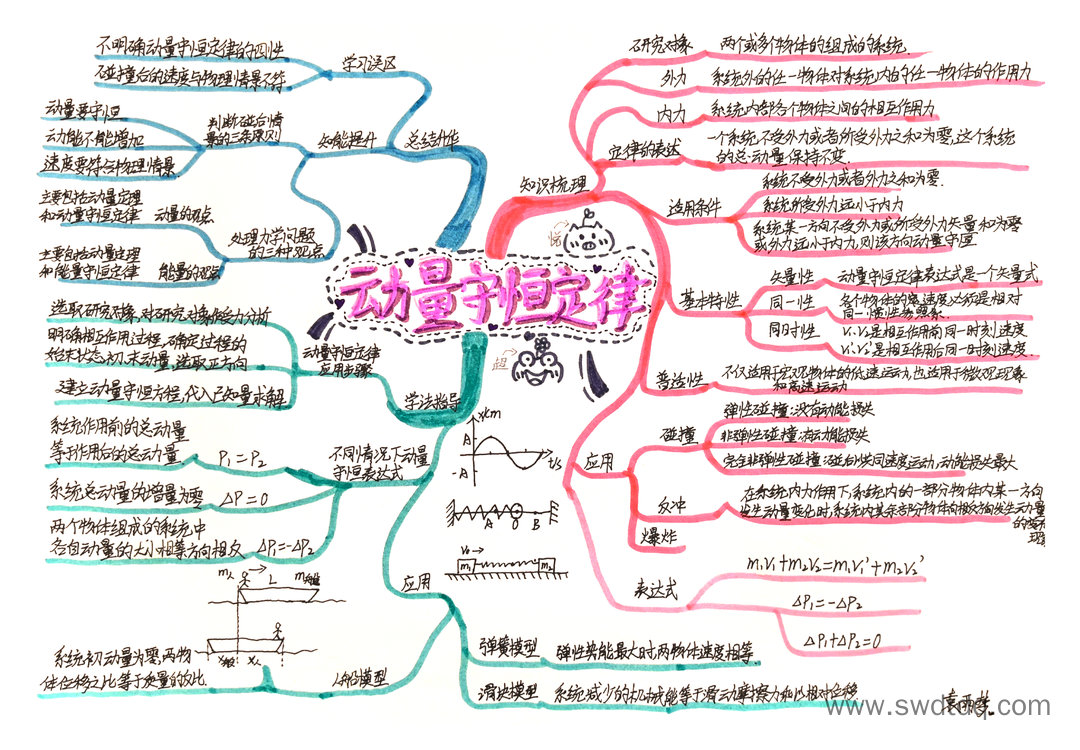 动量守恒定律
总结升华
学习误区
不明确动量守恒定律的四性
碰撞后的速度与物理情景不符
知能提升
判断碰后情
景的三条原则
动量要守恒
动能不能增加
速度要符合物理情景
处理力学问题
的三种观点
主要包括动量定理
和动量守恒定律 动量的观点
主要包括动能定理
和能量守恒定律 能量的观点
学法指导
动量守恒定律
应用步骤
选取研究对象,对研究对象作受力分析
明确相互作用过程,确定过程的
始末状态初、末动量,选取正方向
建立动量守恒方程,代入已知量求解
不同情况下动量
守恒表达式
系统作用前的总动量
等于作用后的总动量 P₁=P₂
系统总动量的增量为零 ΔP=0
两个物体组成的系统中
各自动量的大小相等方向相反 ΔP₁=-ΔP₂
应用
人船模型
系统初动量为零,两物
体位移之比等于质量的反比
弹簧模型 弹性势能最大时,两物体速度相等
滑块模型 系统减少的机械能等于滑动摩擦力乘以相对位移
m人
L
m船
x船 x人
x/cm
A
-A
t/s
A O B
v₀
m₁ m₂
悦
超
知识梳理
研究对象 两个或多个物体的组成的系统
外力 系统外的任一物体对系统内的任一物体的作用力
内力 系统内部各个物体之间的相互作用力
定律的表达 一个系统不受外力或者所受外力之和为零,这个系统
的总动量保持不变.
适用条件
系统不受外力或者外力之和为零.
系统所受外力远小于内力
系统某一方向不受外力或所受外力矢量和为零
或外力远小于内力,则该方向动量守恒
基本特性
矢量性 动量守恒定律表达式是一个矢量式
同一性 各个物体的速度必须是相对
同一惯性参照系.
同时性 V₁、V₂是相互作用前同一时刻速度
V₁'、V₂'是相互作用后同一时刻速度.
普适性 不仅适用于宏观物体的低速运动,也适用于微观现象
和高速运动
应用
碰撞
弹性碰撞:没有动能损失
非弹性碰撞:有动能损失
完全非弹性碰撞:碰后共同速度运动,动能损失最大
反冲 在系统内力作用下,系统内的一部分物体内某一方向
发生动量变化时,系统内其余部分物体向相反方向发生动量
爆炸
表达式
m₁v₁+m₂v₂=m₁v₁'+m₂v₂'
ΔP₁=-ΔP₂
ΔP₁+ΔP₂=0
www.swdtdq.com